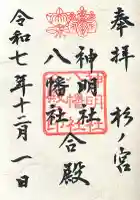 奉拝
杉ノ宮
神明社
八幡社
合殿
令和七年十二月一日